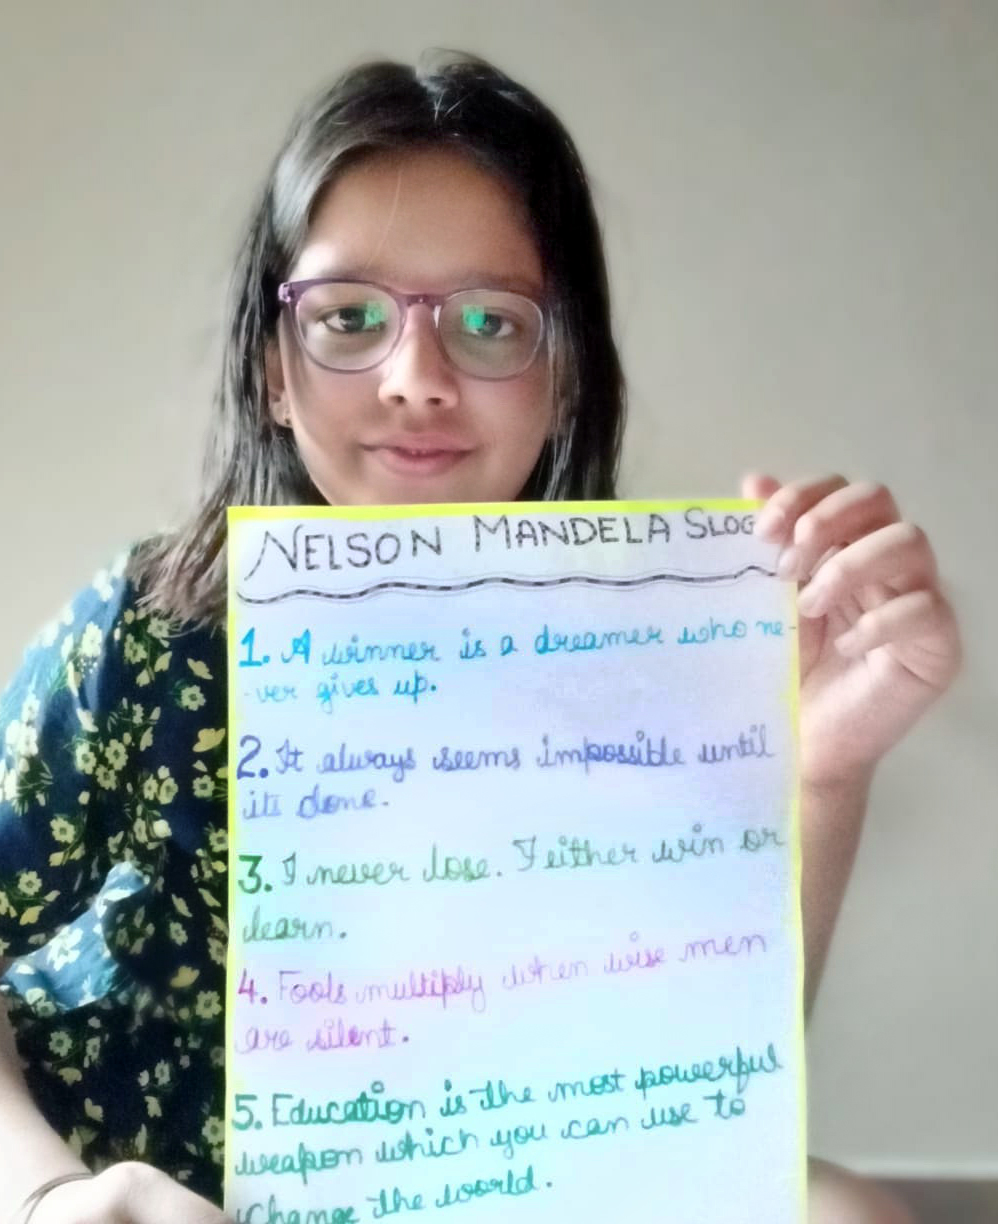 NELSON MANDELA SLOG
1. A winner is a dreamer who ne-
-ver gives up.
2. It always seems impossible until
its done.
3. I never lose. I either win or
learn.
4. Fools multiply when wise men
are silent.
5. Education is the most powerful
weapon which you can use to
change the world.